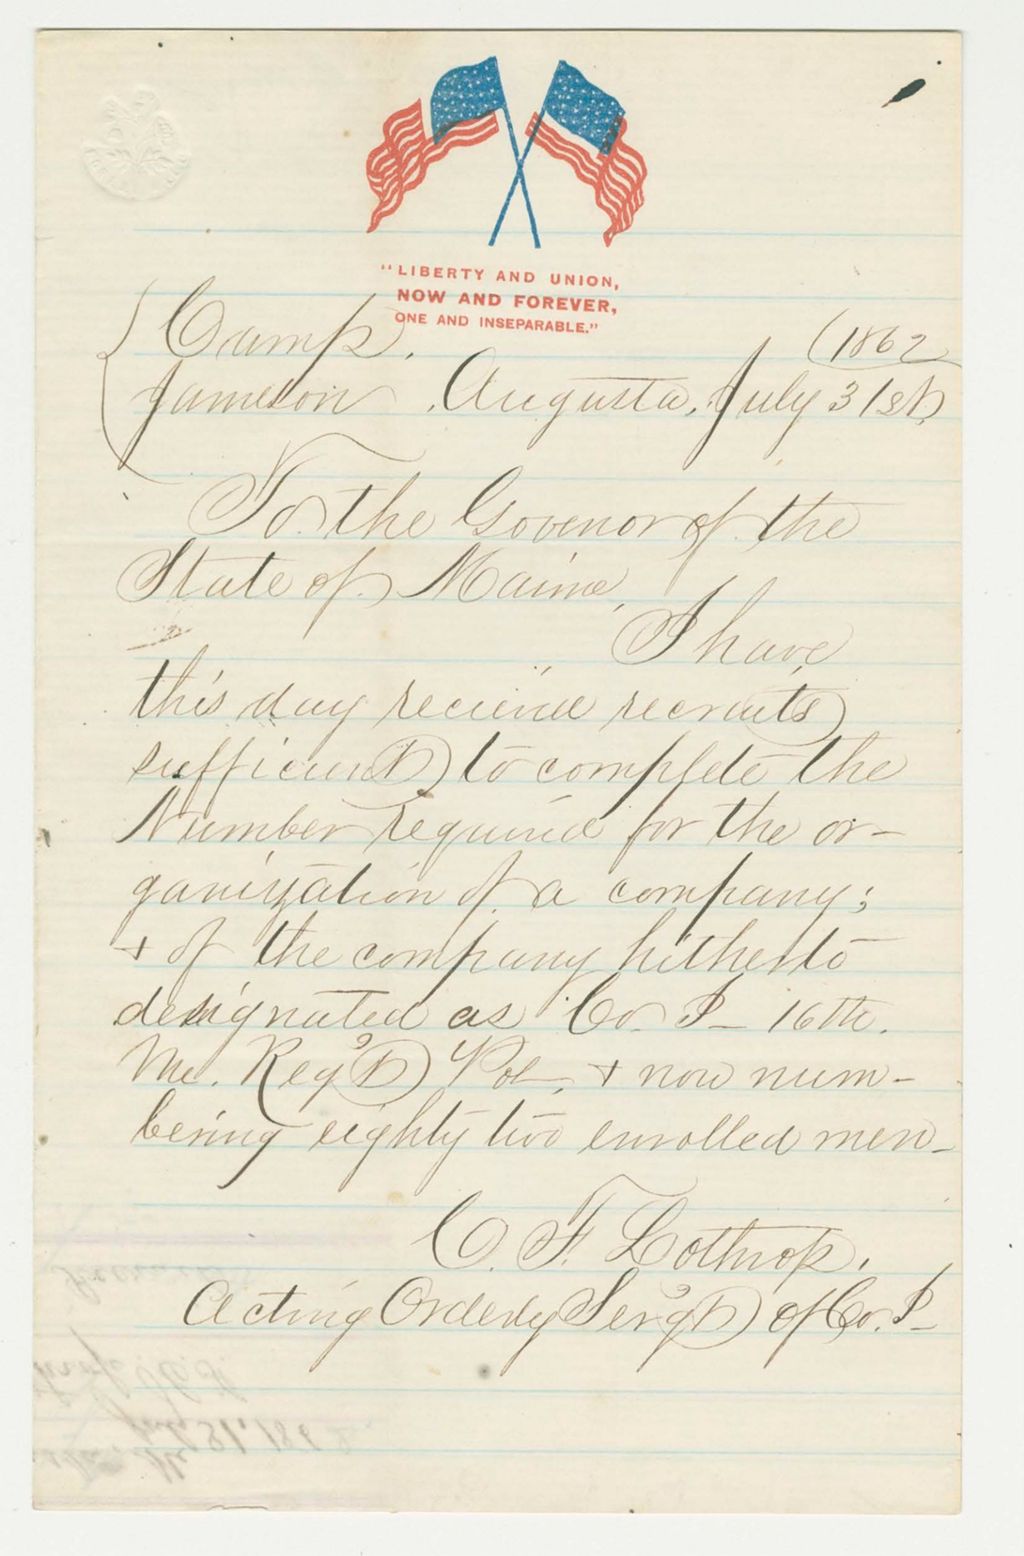 "LIBERTY AND UNION,
NOW AND FOREVER,
ONE AND INSEPARABLE."
Camp.
(1862
Jameson, Augusta, July 31st,
To. the Govenor of the
State of Maine,
I have
this day recieved recruits
sufficient to complete the
Number required for the or-
ganization of a company;
+ of the company hitherto
designated as Co. I - 16th.
Me. Reg't Vol, + now num-
bering eighty two enrolled men-
C. F. Lothrop.
Acting Orderly Serg't of Co. I-